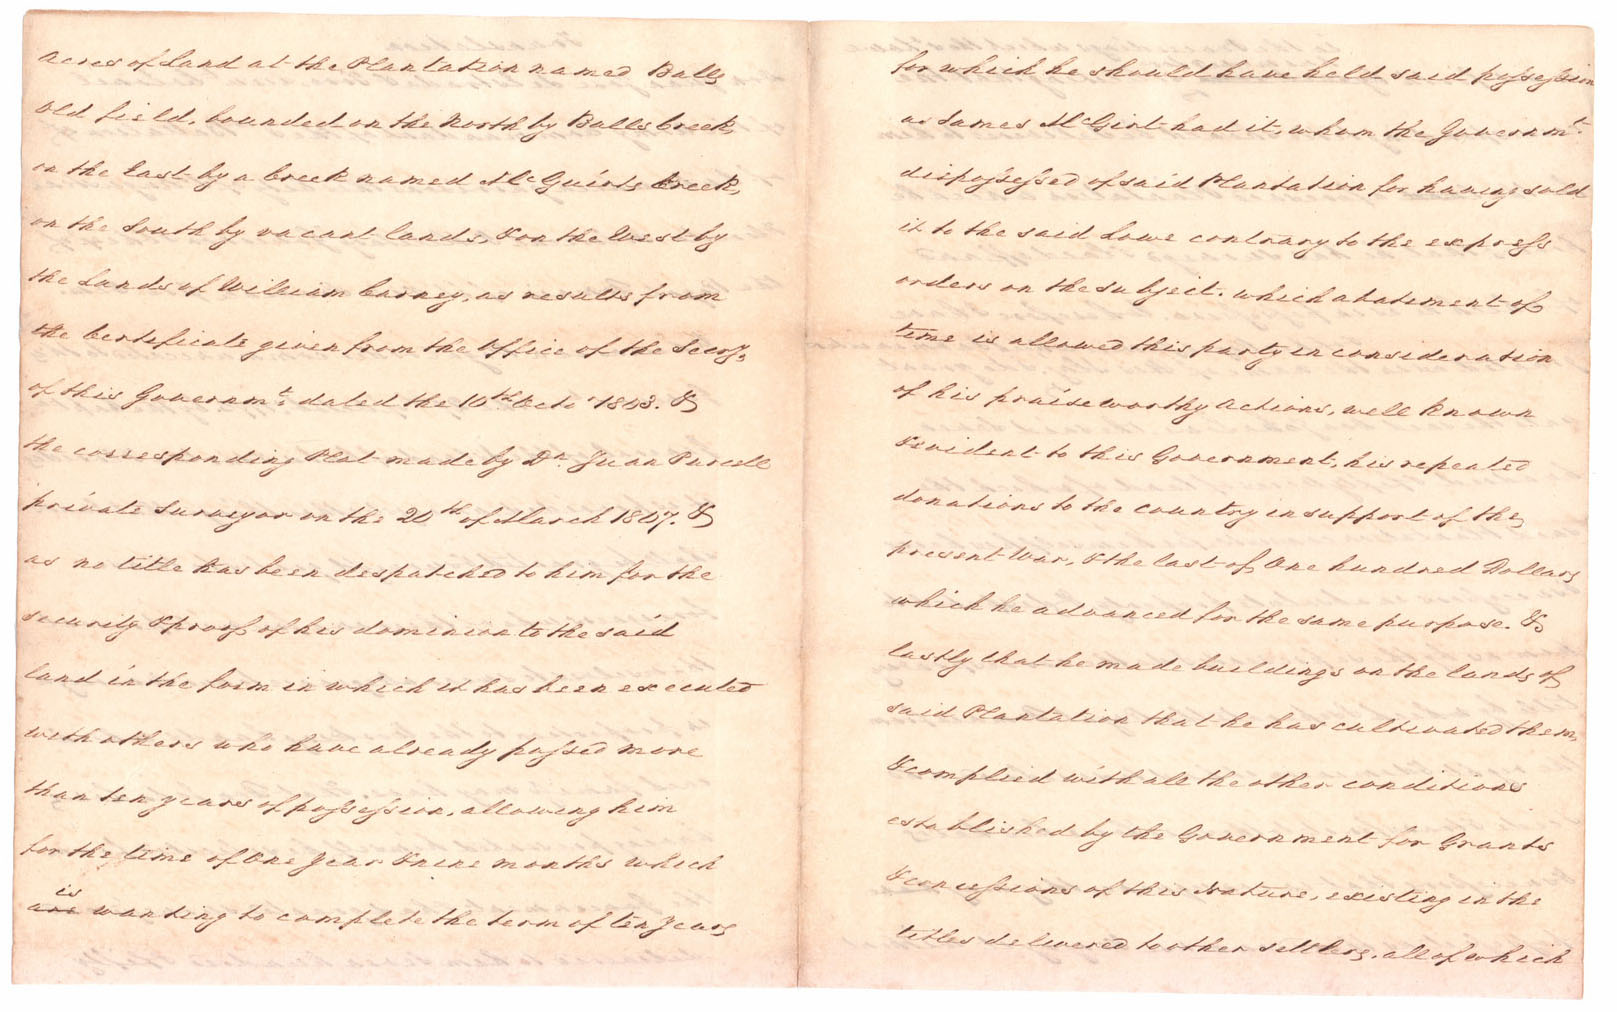 Acres of Land at the Plantation named Balls
Old field, bounded on the North by Balls Creek,
on the East by a Creek named McGuirts Creek,
on the South by vacant lands, & on the West by
the Lands of William Carney, as results from
the Certificate given from the Office of the Secry.
of this Governmt. dated the 10th Octo 1803. &
the corresponding Plat made by Dn. Juan Purcell
private Surveyor on the 20th of March 1807. &
as no title has been despatched to him for the
security & proof of his dominion to the said
land in the form in which it has been executed
with others who have already passed more
than ten years of possession, allowing him
for the time of One Year & nine months which
is
are wanting to complete the term of ten Years
for which he should have held said possession
as James McGirt had it, whom the Governmt.
dispossessed of said Plantation for having sold
it to the said Lowe contrary to the express
orders on the subject. which abatement of
time is allowed this party in consideration
of his praiseworthy Actions, well known
& evident to this Government, his repeated
donations to the country in support of the
present War, & the last of One hundred Dollars
which he advanced for the same purpose. &
lastly that he made buildings on the lands of
said Plantation that he has cultivated them,
& complied with all the other conditions
established by the Government for Grants
& concessions of this Nature, existing in the
titles delivered to other settlers, all of which